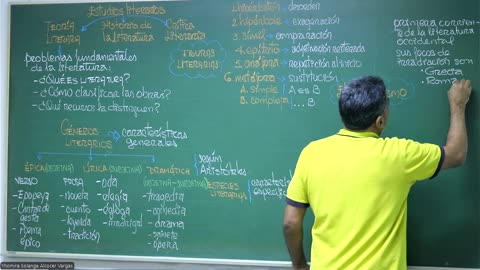 Estudios literarios
Teoría
Literaria
Historia de
la Literatura
Crítica
Literaria
problemas fundamentales
de la literatura:
- ¿QUÉ ES LITERATURA?
- ¿Cómo clasificar las obras?
- ¿Qué recursos la distinguen?
FIGURAS
LITERARIAS
1. Hipérbaton → desorden
2. hipérbole → exageración
3. símil → comparación
4. epíteto → adjetivación reiterada
→ repetición al inicio
6. metáfora → sustitución
A. simple A es B
B. compleja ... B
primera corriente
de la literatura
occidental
sus focos de
irradiación son
- Grecia
- Roma
Géneros
Literarios → características
generales
ÉPICA LÍRICA DRAMÁTICA
según
Aristóteles
VERSO
- Epopeya
- Cantar de
gesta
- Poema
épico
PROSA
- novela
- cuento
- leyenda
- tradición
- oda
- elegía
- égloga
- madrigal
- tragedia
- comedia
- drama
- sainete
- ópera
ESPECIES
LITERARIAS
Yhomira Solanga Alcocer Vargas